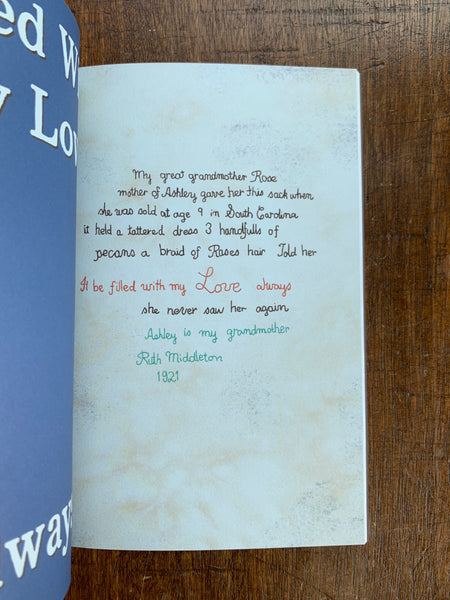 ed W
y Lov
ways
My great grandmother Rose
mother of Ashley gave her this sack when
she was sold at age 9 in South Carolina
it held a tattered dress 3 handfulls of
pecans a braid of Roses hair Told her
It be filled with my Love always
she never saw her again
Ashley is my grandmother
Ruth Middleton
1921